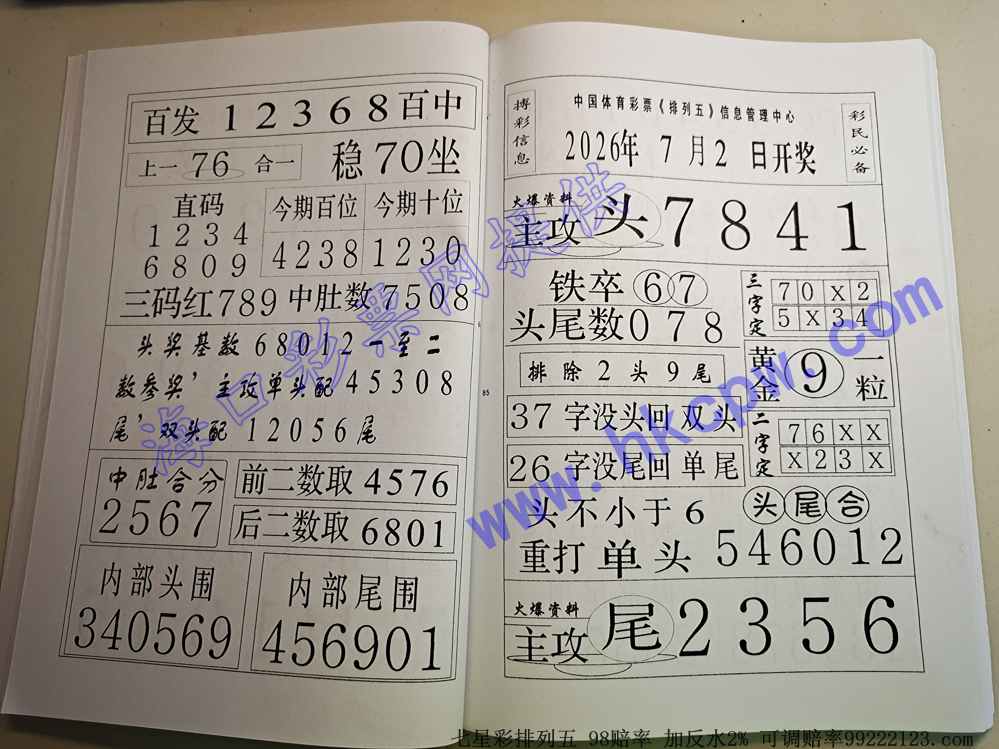 百发 12368 百中
上一 76 合一
稳 70 坐
直码
1 2 3 4
6 8 0 9
今期百位
4238
今期十位
1230
三码红789
中肚数7508
头奖基数68012一至二
数参奖'主攻单头配45308
尾'双头配12056尾
中肚合分
2567
前二数取 4576
后二数取 6801
内部头围
340569
内部尾围
456901
85
搏彩信息
中国体育彩票《排列五》信息管理中心
2026年 7月2日开奖
彩民必备
火爆资料
主攻头7841
铁卒 67
头尾数078
排除2头9尾
37字没头回双头
26字没尾回单尾
三字定
7 0 X 2
5 X 3 4
黄金 9 一粒
二字定
7 6 X X
X 2 3 X
头不小于6
头尾合
重打单头546012
火爆资料
主攻尾2356
海口彩票网提供
www.hkcpw.com
七星彩排列五 98赔率 加反水2% 可调赔率99222123.com